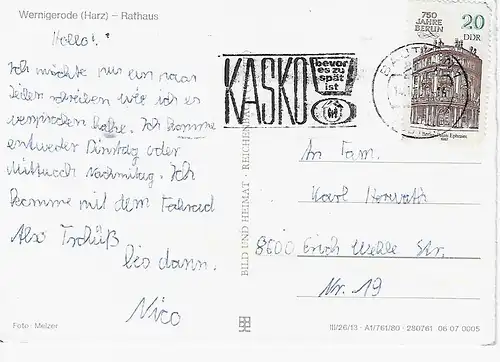 Wernigerode (Harz) – Rathaus
Hallo!
Ich möchte nur ein paar
Zeilen schreiben wie ich es
versprochen habe. Ich komme
entweder Dinstag oder
Mittwoch Nachmitag. Ich
komme mit dem Fahrrad
Also Tschüß
bis dann.
Nico
Foto: Melzer
BILD UND HEIMAT · REICHENBACH
KASKO
bevor
es zu
spät
ist
750
JAHRE
BERLIN
20
DDR
An Fam.
Karl Horvath
8600 Erich Str.
Nr. 19
III/26/13 · A1/761/80 · 280761 06 07 0005